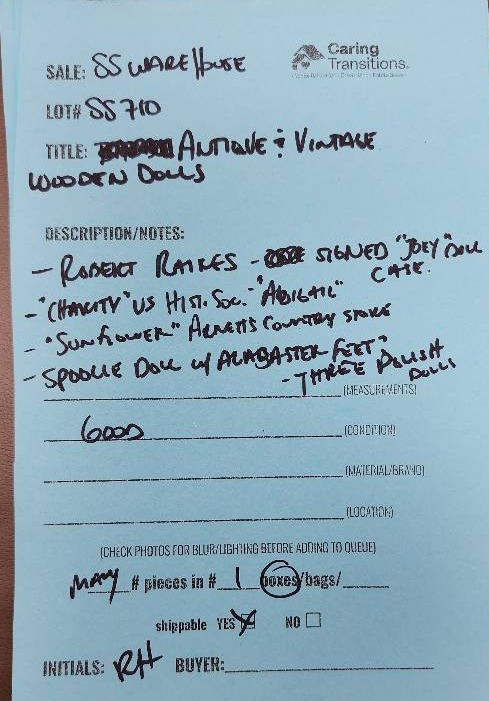 SALE: SS WAREHOUSE
Caring
Transitions.
LOT# SS 710
TITLE: ANTIQUE & VINTAGE
WOODEN DOLLS
DESCRIPTION/NOTES:
- ROBERT RAIKES - SIGNED "JOEY" DOLL
CASE.
- "CHARITY" US HIST. SOC. - "ABIGAIL"
- "SUNFLOWER" ARNETTS COUNTRY STORE
- SPOOLIE DOLL W/ ALABASTER FEET"
- THREE POLISH
DOLLS
(MEASUREMENTS)
GOOD (CONDITION)
(MATERIAL/BRAND)
(LOCATION)
(CHECK PHOTOS FOR BLUR/LIGHTING BEFORE ADDING TO QUEUE)
MANY # pieces in # 1 boxes/bags/
shippable YES NO
INITIALS: RH BUYER: